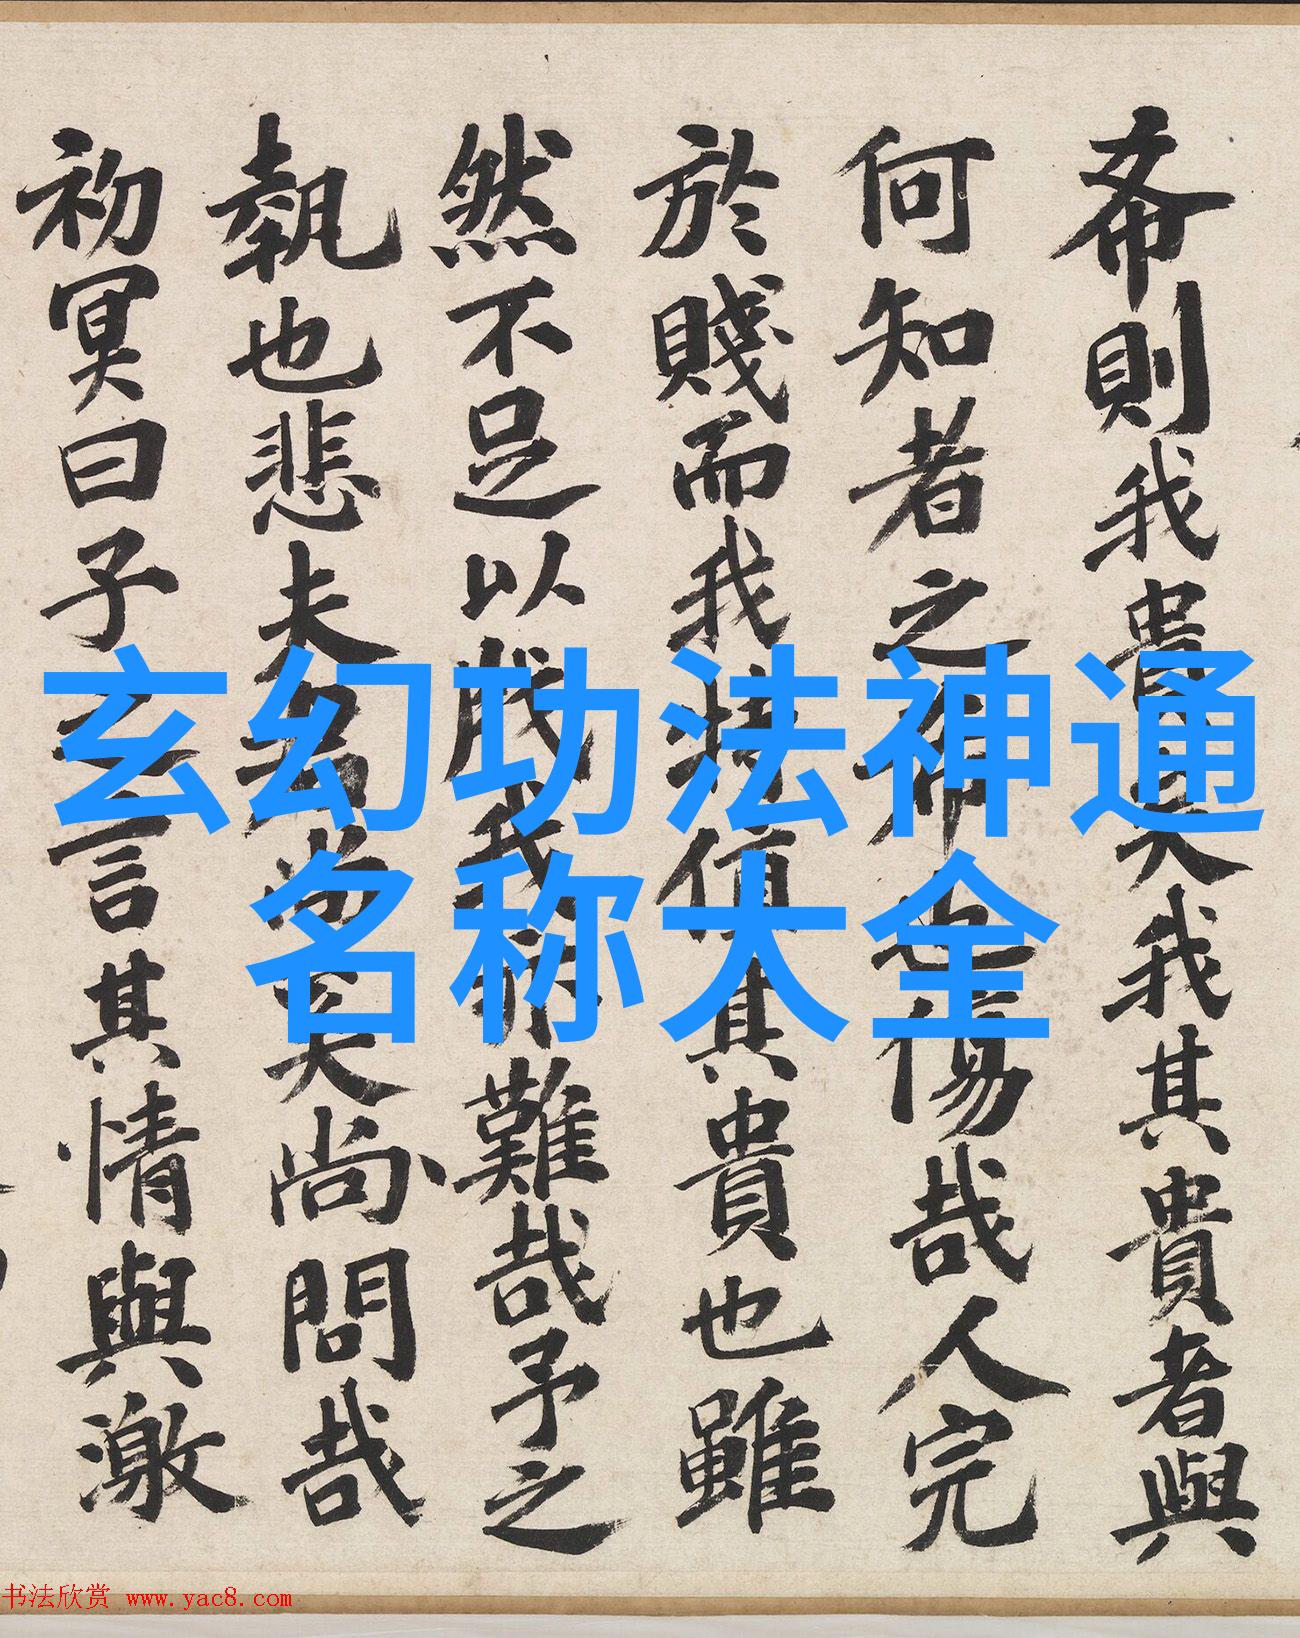 玄幻功法神通
名称大全
希則我貴矣我其貴者與
何知者之希也傷哉人完
於賤而我特值其貴也雖
然不足以我難哉予之
執也悲夫名尚矣尚問哉
初冥曰子之言其情與激
书法欣赏 www.yac8.com